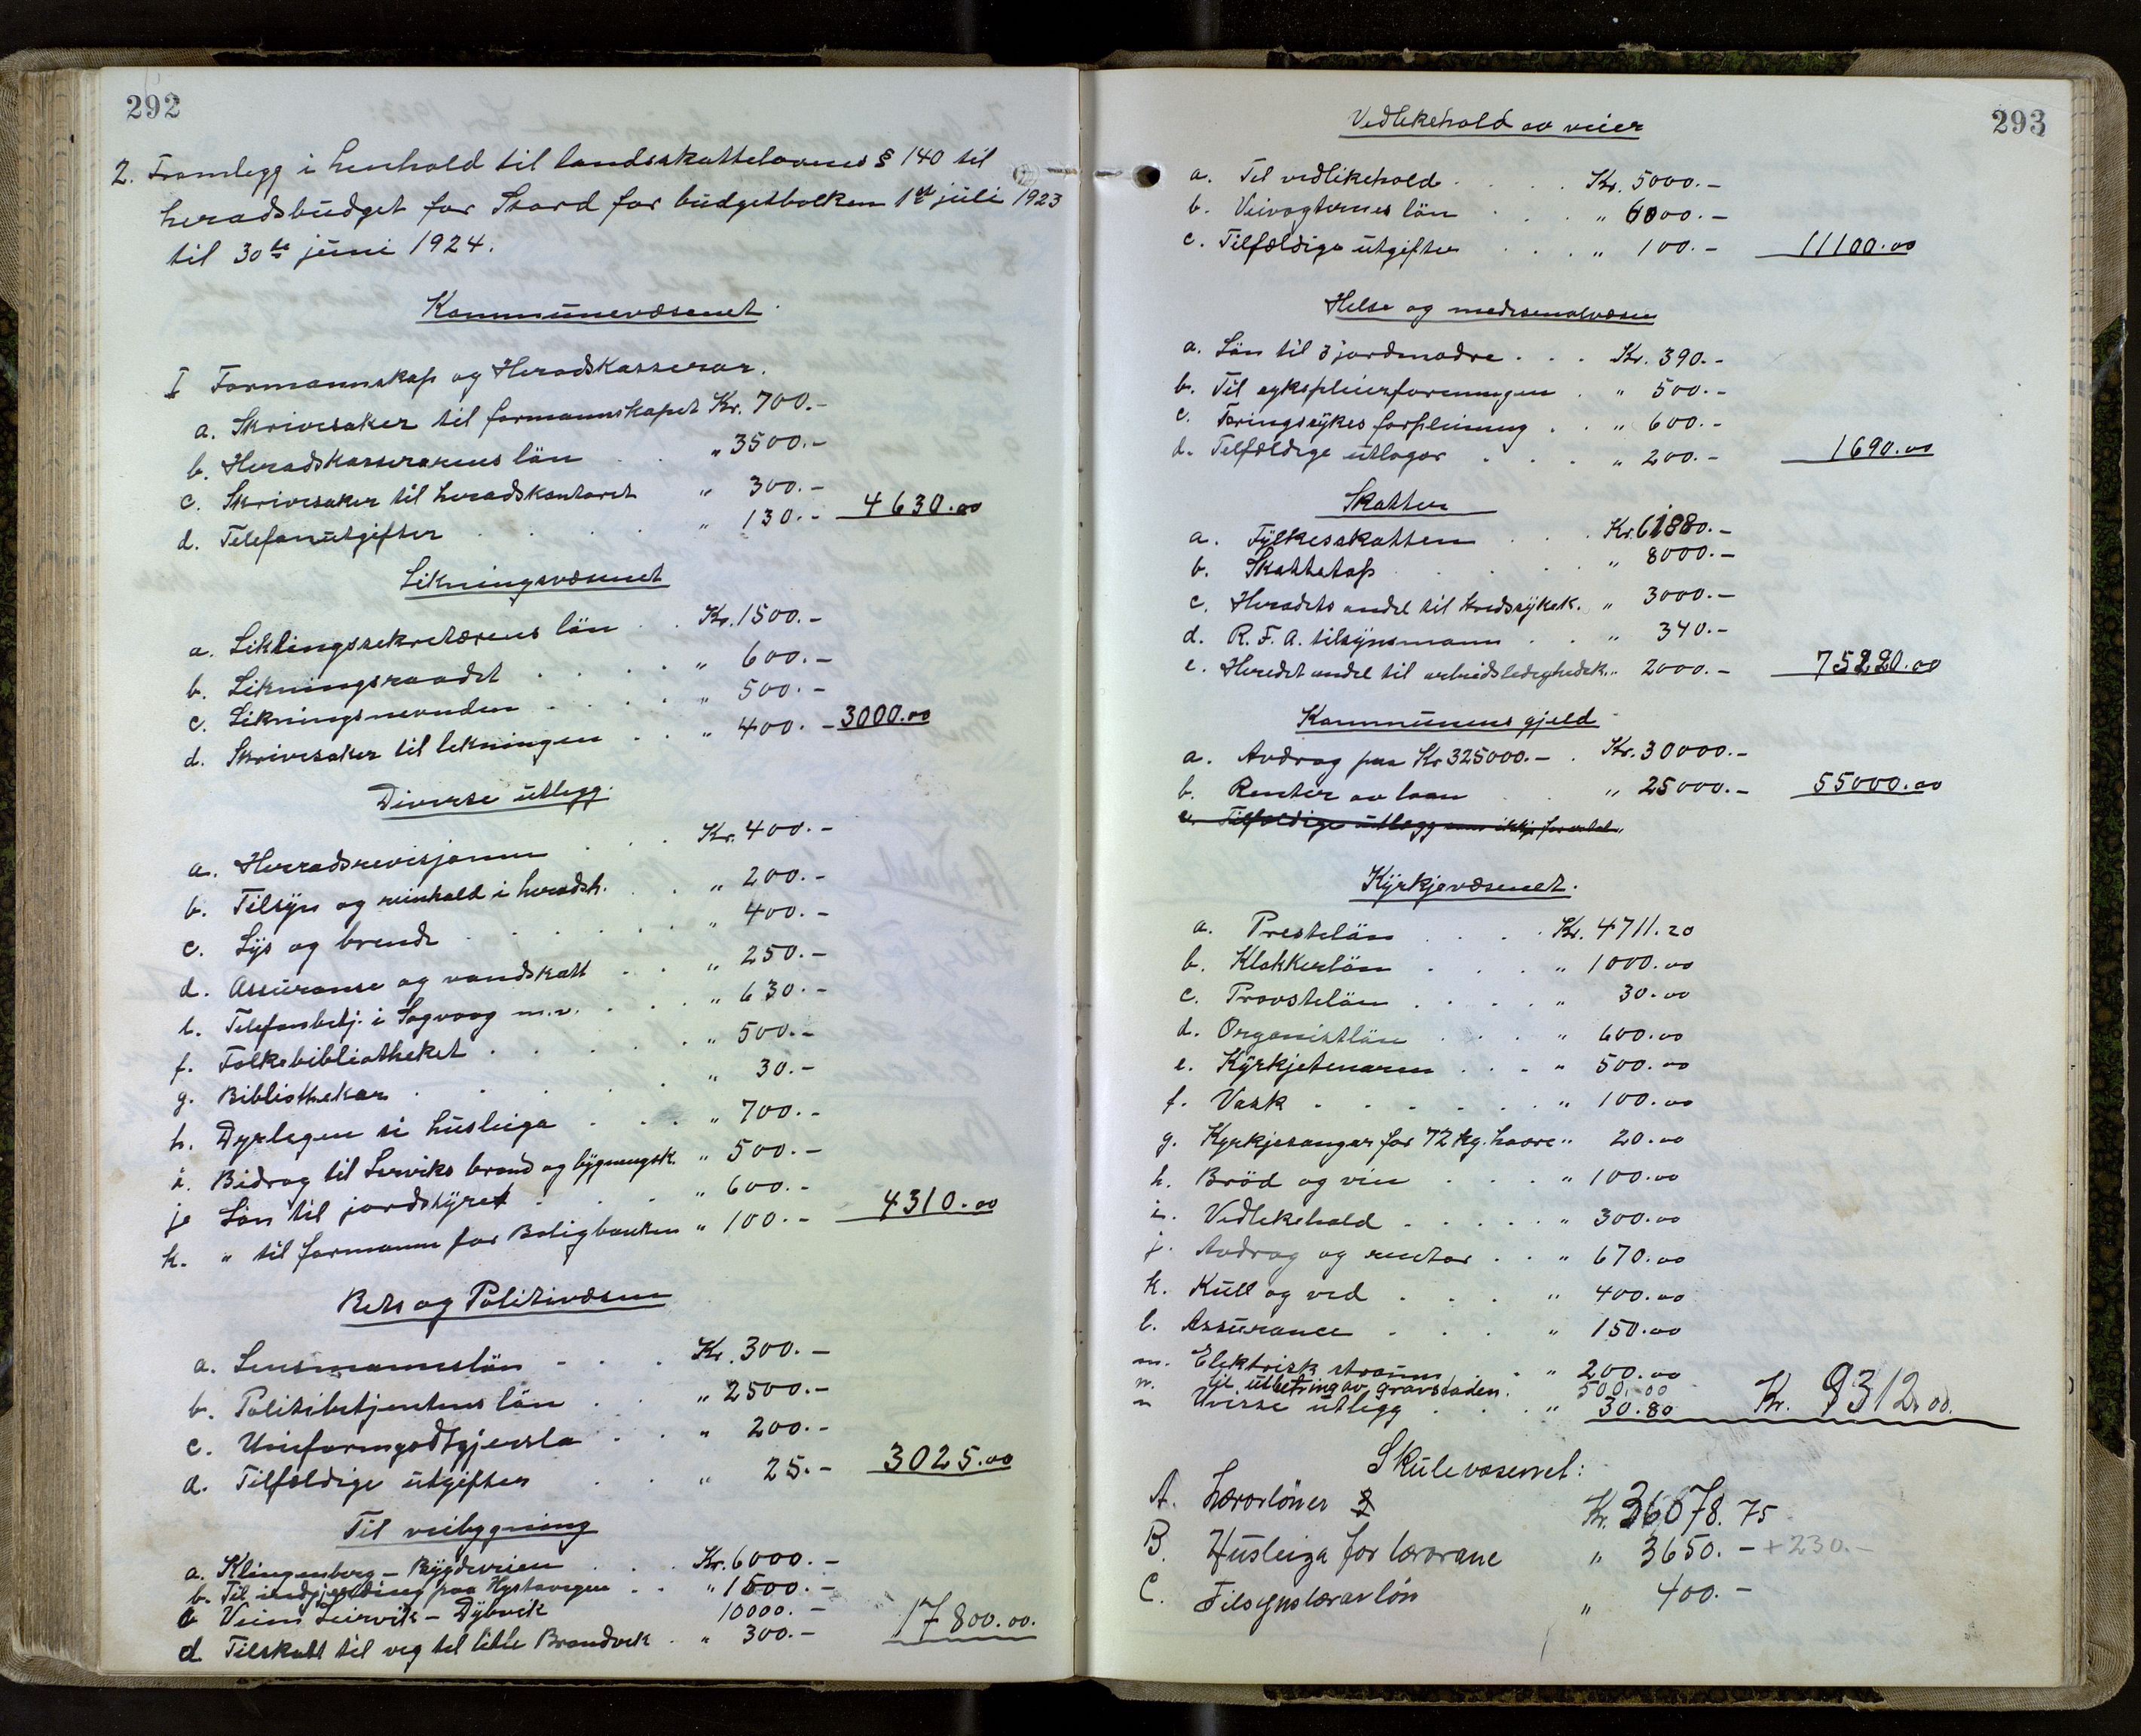 292
2. Framlegg i henhold til landsskattelovens § 140 til
heradsbudget for Stord for budgetbolken 1ste juli 1923
til 30te juni 1924.
Kommunevæsenet.
I Formannskap og Heradskasserar.
a. Skrivesaker til formannskapet Kr. 700.-
b. Heradskasserarens lön . . " 3500.-
c. Skrivesaker til heradskontoret " 300.-
d. Telefonutgifter . . . . " 130.- 4630.00
Likningsvæsenet
a. Liklingssekretærens lön . . Kr. 1500.-
b. Likningsraadet . . . . " 600.-
c. Likningsnevnden . . . . " 500.-
d. Skrivesaker til likningen . . " 400.- 3000.00
Diverse utlegg.
a. Herradsrevisjonen . . . Kr. 400.-
b. Tilsyn og reinhald i heradsh. . . " 200.-
c. Lys og brende . . . . . . " 400.-
d. Assuranse og vandskatt . . " 250.-
e. Telefonbetj. i Sagvaag m.v. . . . " 630.-
f. Folkebibliotheket . . . . . " 500.-
g. Bibliothekar . . . . . " 30.-
h. Dyrlegen si husleiga . . . " 700.-
i. Bidrag til Lerviks brand og bygningsk. " 500.-
j. Lön til jordstyret . . . . " 600.-
k. " til formann for Boligbanken " 100.- 4310.00
Rets og Politivæsen
a. Lensmannslön - . . Kr. 300.-
b. Politibetjentens lön . . " 2500.-
c. Uniformgodtgjersla . . " 200.-
d. Tilfældige utgifter . . " 25.- 3025.00
Til veibygning
a. Klingenberg - Bygdeveien . . . Kr. 6000.-
b. Til indgjerding paa Hystavegen . . " 1500.-
c Veien Leirvik - Dybvik 10000.-
d Tilskatt til veg til litle Brandvik . " 300.- 17800.00.
293
Vedlikehold av veier
a. Til vedlikehold . . . . Kr. 5000.-
b. Veivogternes lön . . . " 6000.-
c. Tilfældige utgifter . . . " 100.- 11100.00
Helse og medisenalvæsen
a. Lön til 3 jordmødre . . . Kr. 390.-
b. Til sykepleierforeningen . " 500.-
c. Tæringssykes forpleining . . " 600.-
d. Tilfældige utlagor . . . " 200.- 1690.00
Skatter
a. Fylkesskatten . . . Kr. 61880.-
b. Skattetap . . . . " 8000.-
c. Heradets andel til kredssykek. " 3000.-
d. R. F. A. tilsynsmann . . " 340.-
e. Heredet andel til arbeidsledighedsk. " 2000.- 75220.00
Kommunens gjeld
a. Avdrag paa Kr 325000.- . Kr. 30000.-
b. Renter av laan . . " 25000.- 55000.00
c. Tilfældige utlegg som ikkje
Kyrkjevæsenet.
a. Prestelön . . . . Kr. 4711.20
b. Klokkerlön . . . " 1000.00
c. Provstelön . . . . " 30.00
d. Organistlön . . . " 600.00
e. Kyrkjetenaren . . . " 500.00
f. Vask . . . . . . " 100.00
g. Kyrkjesangar for 72 kg. havre " 20.00
h. Bröd og vin . . . " 100.00
i. Vedlikehald . . . . . " 300.00
j. Avdrag og rentor . . " 670.00
k. Kull og ved . . . " 400.00
l. Assurance . . . " 150.00
m. Elektrisk straum . " 200.00
n. til utbetring av gravstaden. 500.00
n Uvisse utlegg . . . " 30.80 Kr. 9312.00.
Skulevæsenet:
A. Lærarlöner 3 Kr. 36078.75
B. Husleiga for lærarane " 3650.- +230.-
C. Tilsynslærarlön " 400.-